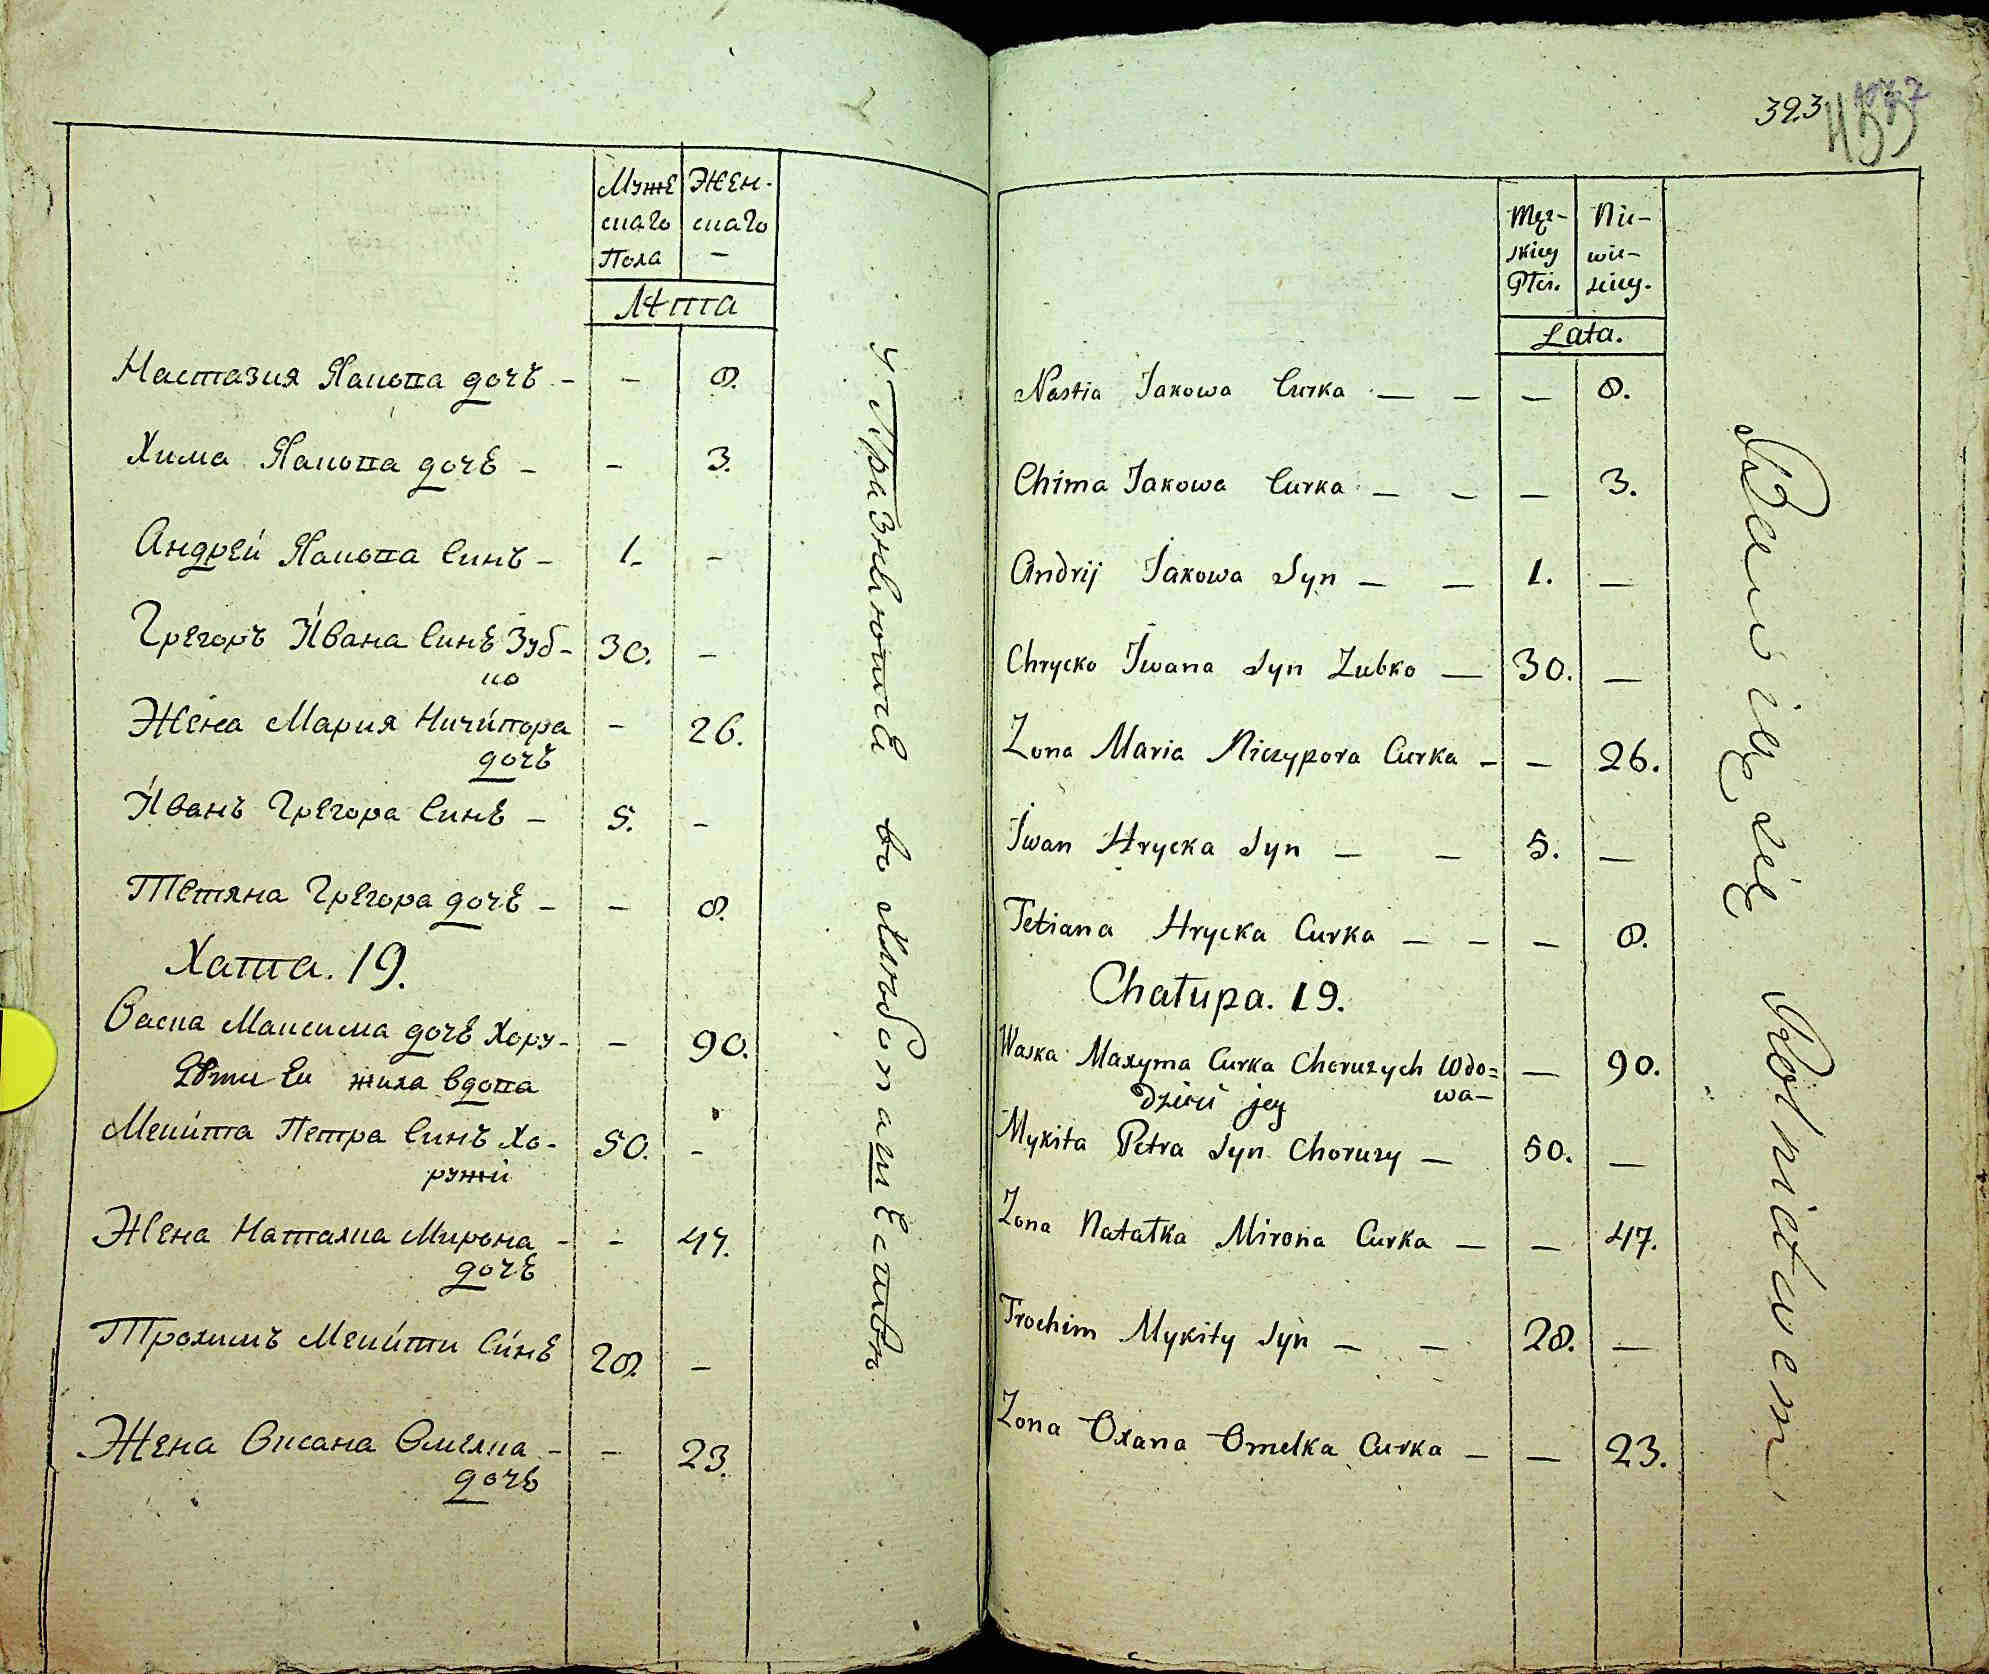 Муже
скаго
Пола
Жен-
скаго
—
Лѣта
Настазия Якова дочъ - - 8.
Хима Якова дочъ - - 3.
Андрей Якова Синъ - 1. -
Грегоръ Ивана Синъ Зуб- 30. -
ко
Жена Мария Ничипора - 26.
дочъ
Иванъ Грегора Синъ - 5. -
Тетяна Грегора дочъ - - 8.
Хата. 19.
Васка Максима дочъ Хору- - 90.
вдова
Мекита Петра Синъ Хо- 50. -
ружи
Жена Наталка Мирона - - 47.
дочъ
Трохимъ Мекити Синъ 28. -
Жена Оксана Омелка - - 23.
дочъ
323
Męz-
kiey
Płci.
Nie-
wie-
sciey.
Lata.
Nastia Jakowa Curka — — — 8.
Chima Jakowa Curka — — — 3.
Andrij Jakowa Syn — — 1. —
Chrycko Iwana Syn Zubko — 30. —
Zona Maria Niczypora Curka — — 26.
Iwan Hrycka Syn — — 5. —
Tetiana Hrycka Curka — — — 8.
Chałupa. 19.
Waska Maxyma Curka Choruzych Wdo= — 90.
Dzieci jey wa—
Mykita Petra Syn Choruzy — 50. —
Zona Natałka Mirona Curka — — 47.
Trochim Mykity Syn — — 28. —
Zona Oxana Omelka Curka — — 23.
Bawią się Rolnictwem